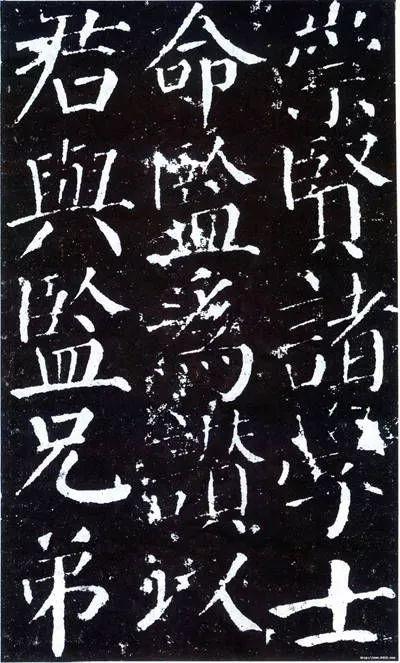 崇賢諸学士
命監為讚以
君與監兄弟